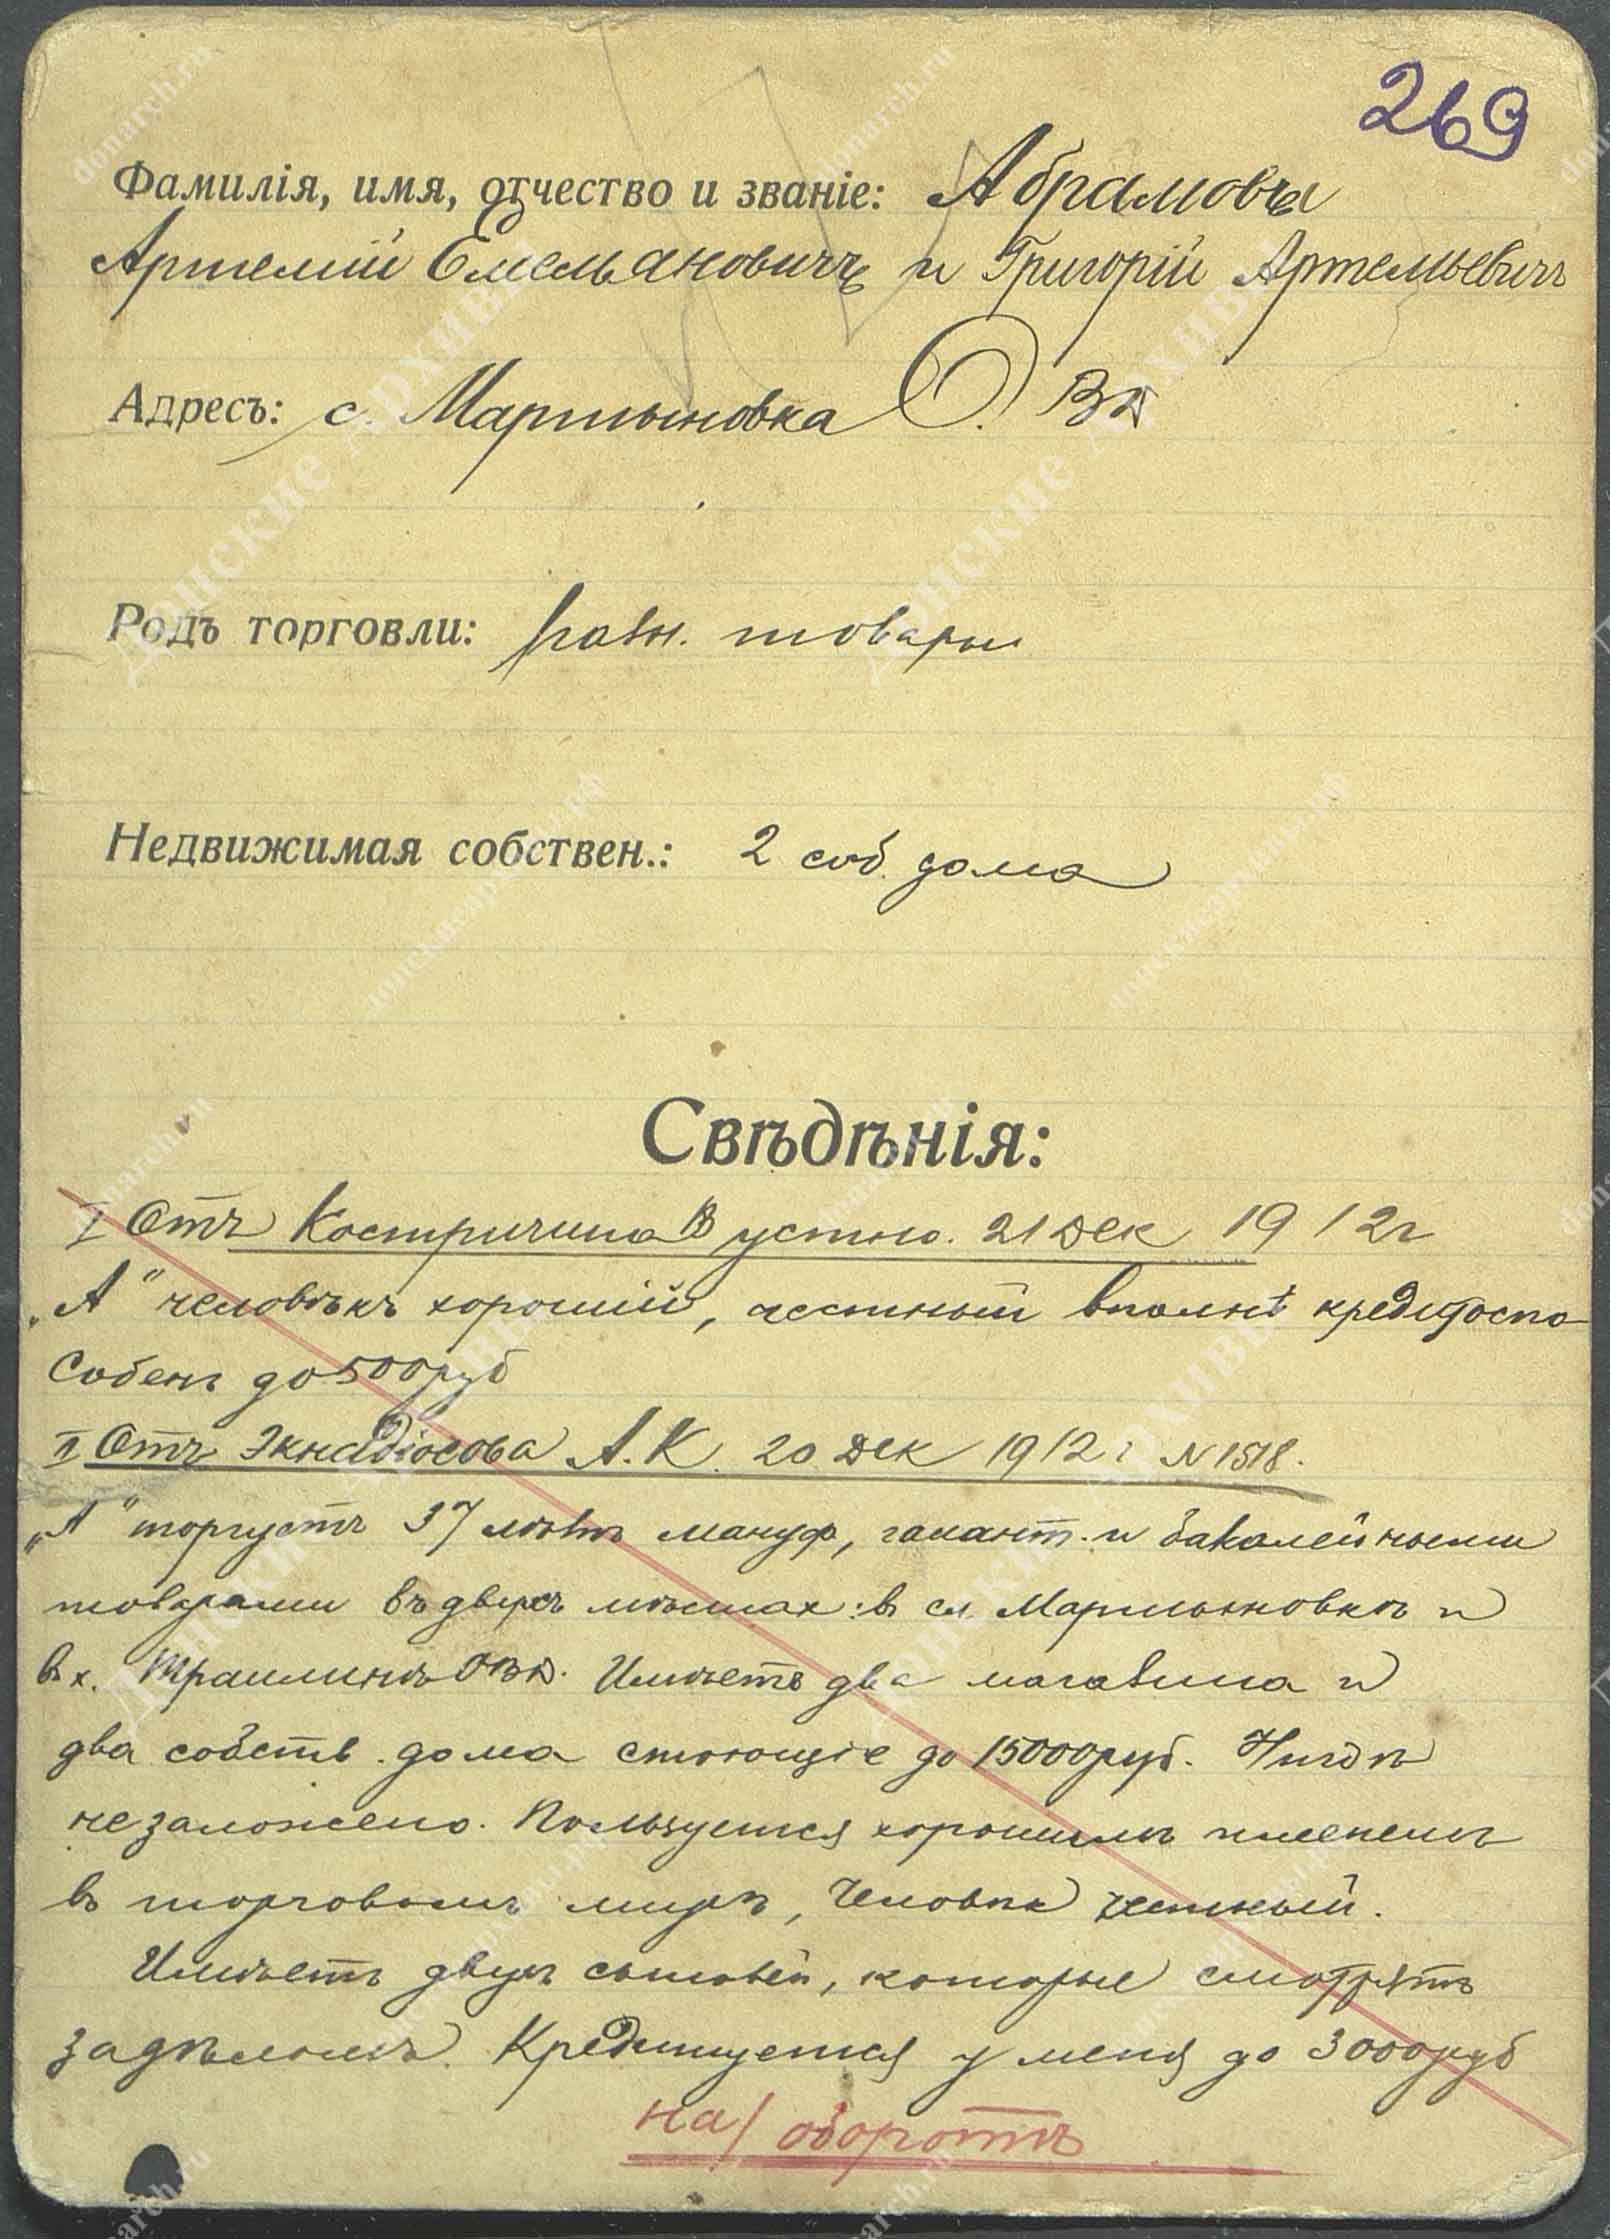 269
Фамилія, имя, отчество и званіе: Абрамовы
Артемій Емельяновичъ и Григорій Артемьевичъ
Адресъ: с. Мартыновка О. ВД
Родъ торговли: разн. товары
Недвижимая собствен.: 2 соб. дома
Свѣдѣнія:
I Отъ Костричина В устно. 21 Дек 1912г
„А" человѣкъ хорошій, честный вполнѣ кредитоспо-
собенъ до 500 руб
II Отъ Экнадіосова А.К. 20 Дек 1912 г N 1518.
„А" торгуетъ 37 лѣтъ мануф, галант. и бакалейными
товарами въ двухъ мѣстах: в сл. Мартыновкѣ и
в х. Траилинѣ ОВД. Имѣетъ два магазина и
два собств. дома стоющіе до 15000 руб. Нигдѣ
не заложено. Пользуется хорошимъ именемъ
въ торговомъ мирѣ, Человѣк честный.
Имѣетъ двухъ сыновей, которые смотрятъ
за дѣломъ. Кредитуется у меня до 3000 руб
на / оборотѣ